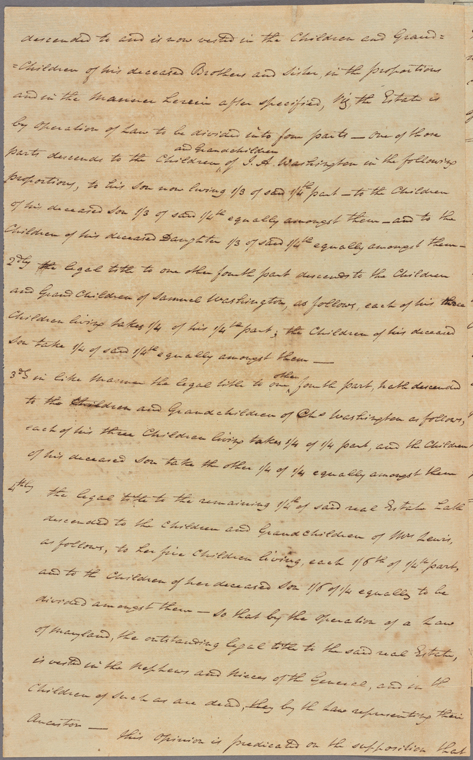 descended to and is now vested in the Children and Grand=
=Children of his deceased Brothers and Sister in the proportions
and in the Manner herein after specified, Viz, the Estate is
by operation of Law to be divided into four parts — One of those
and Grandchildren
parts descends to the Children of J. A. Washington in the following
proportions, to his Son now living 1/3 of said 1/4th part — to the Children
of his deceased Son 1/3 of said 1/4th equally amongst them — and to the
Children of his deceased Daughter 1/3 of said 1/4th equally amongst them —
2dly the legal title to one other fourth part descends to the Children
and Grand Children of Samuel Washington, as follows, each of his three
Children living takes 1/4 of his 1/4th part; the Children of his deceased
Son take 1/4 of said 1/4th equally amongst them —
other
3dly in like Manner the legal title to one fourth part, hath descended
to the Children and Grandchildren of Chs Washington as follows,
each of his three Children living takes 1/4 of 1/4 part, and the Children
of his deceased Son take the other 1/4 of 1/4 equally amongst them
4thly the legal title to the remaining 1/4th of said real Estate hath
descended to the Children and Grandchildren of Mrs Lewis,
as follows, to her five Children living, each 1/6th of 1/4th part,
and to the Children of her deceased Son 1/6 of 1/4 equally to be
divided amongst them — so that by the operation of a Law
of Maryland, the outstanding legal title to the said real Estate,
is vested in the Nephews and Nieces of the General, and in th
Children of such as are dead, they by the Law representing their
Ancestor —
this Opinion is predicated on the supposition that